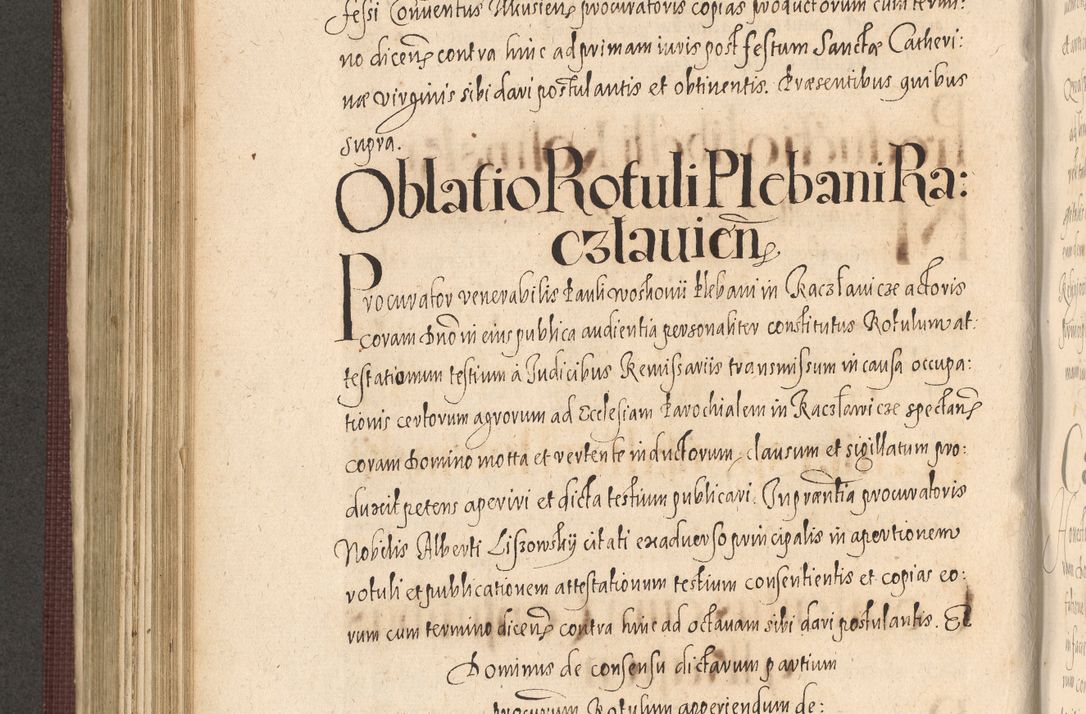 fessi Conventus Musien procuratoris copias productorum cum termi:
no dicen contra hinc ad primam iuris post festum Sanctæ Catheri:
næ virginis sibi dari postulantis et obtinentis. Præsentibus quibus
supra.
Oblatio Rotuli Plebani Ra:
czlavicen
Procurator venerabilis Pauli woshonii Plebani in Raczlavicze actoris
coram Dno in eius publica audientia personaliter constitutus Rotulum at:
testationum testium à Judicibus Remissariis transmissum in causa occupa:
tionis certorum agrorum ad Ecclesiam Parochialem in Raczlawicze spectan
coram Domino motta et vertente inductorum, clausum et sigillatum pro:
duxit petens aperiri et dicta testium publicari. In præntia procuratoris
Nobilis Alberti Liszowskij citati ex adverso principalis in apertionem
rotuli et publicationem attestationum testium consentientis et copias eo:
rum cum termino dicen contra hinc ad octavam sibi dari postulantis. Et
Dominus de consensu dictarum partium
Rotulum apperiendum de: